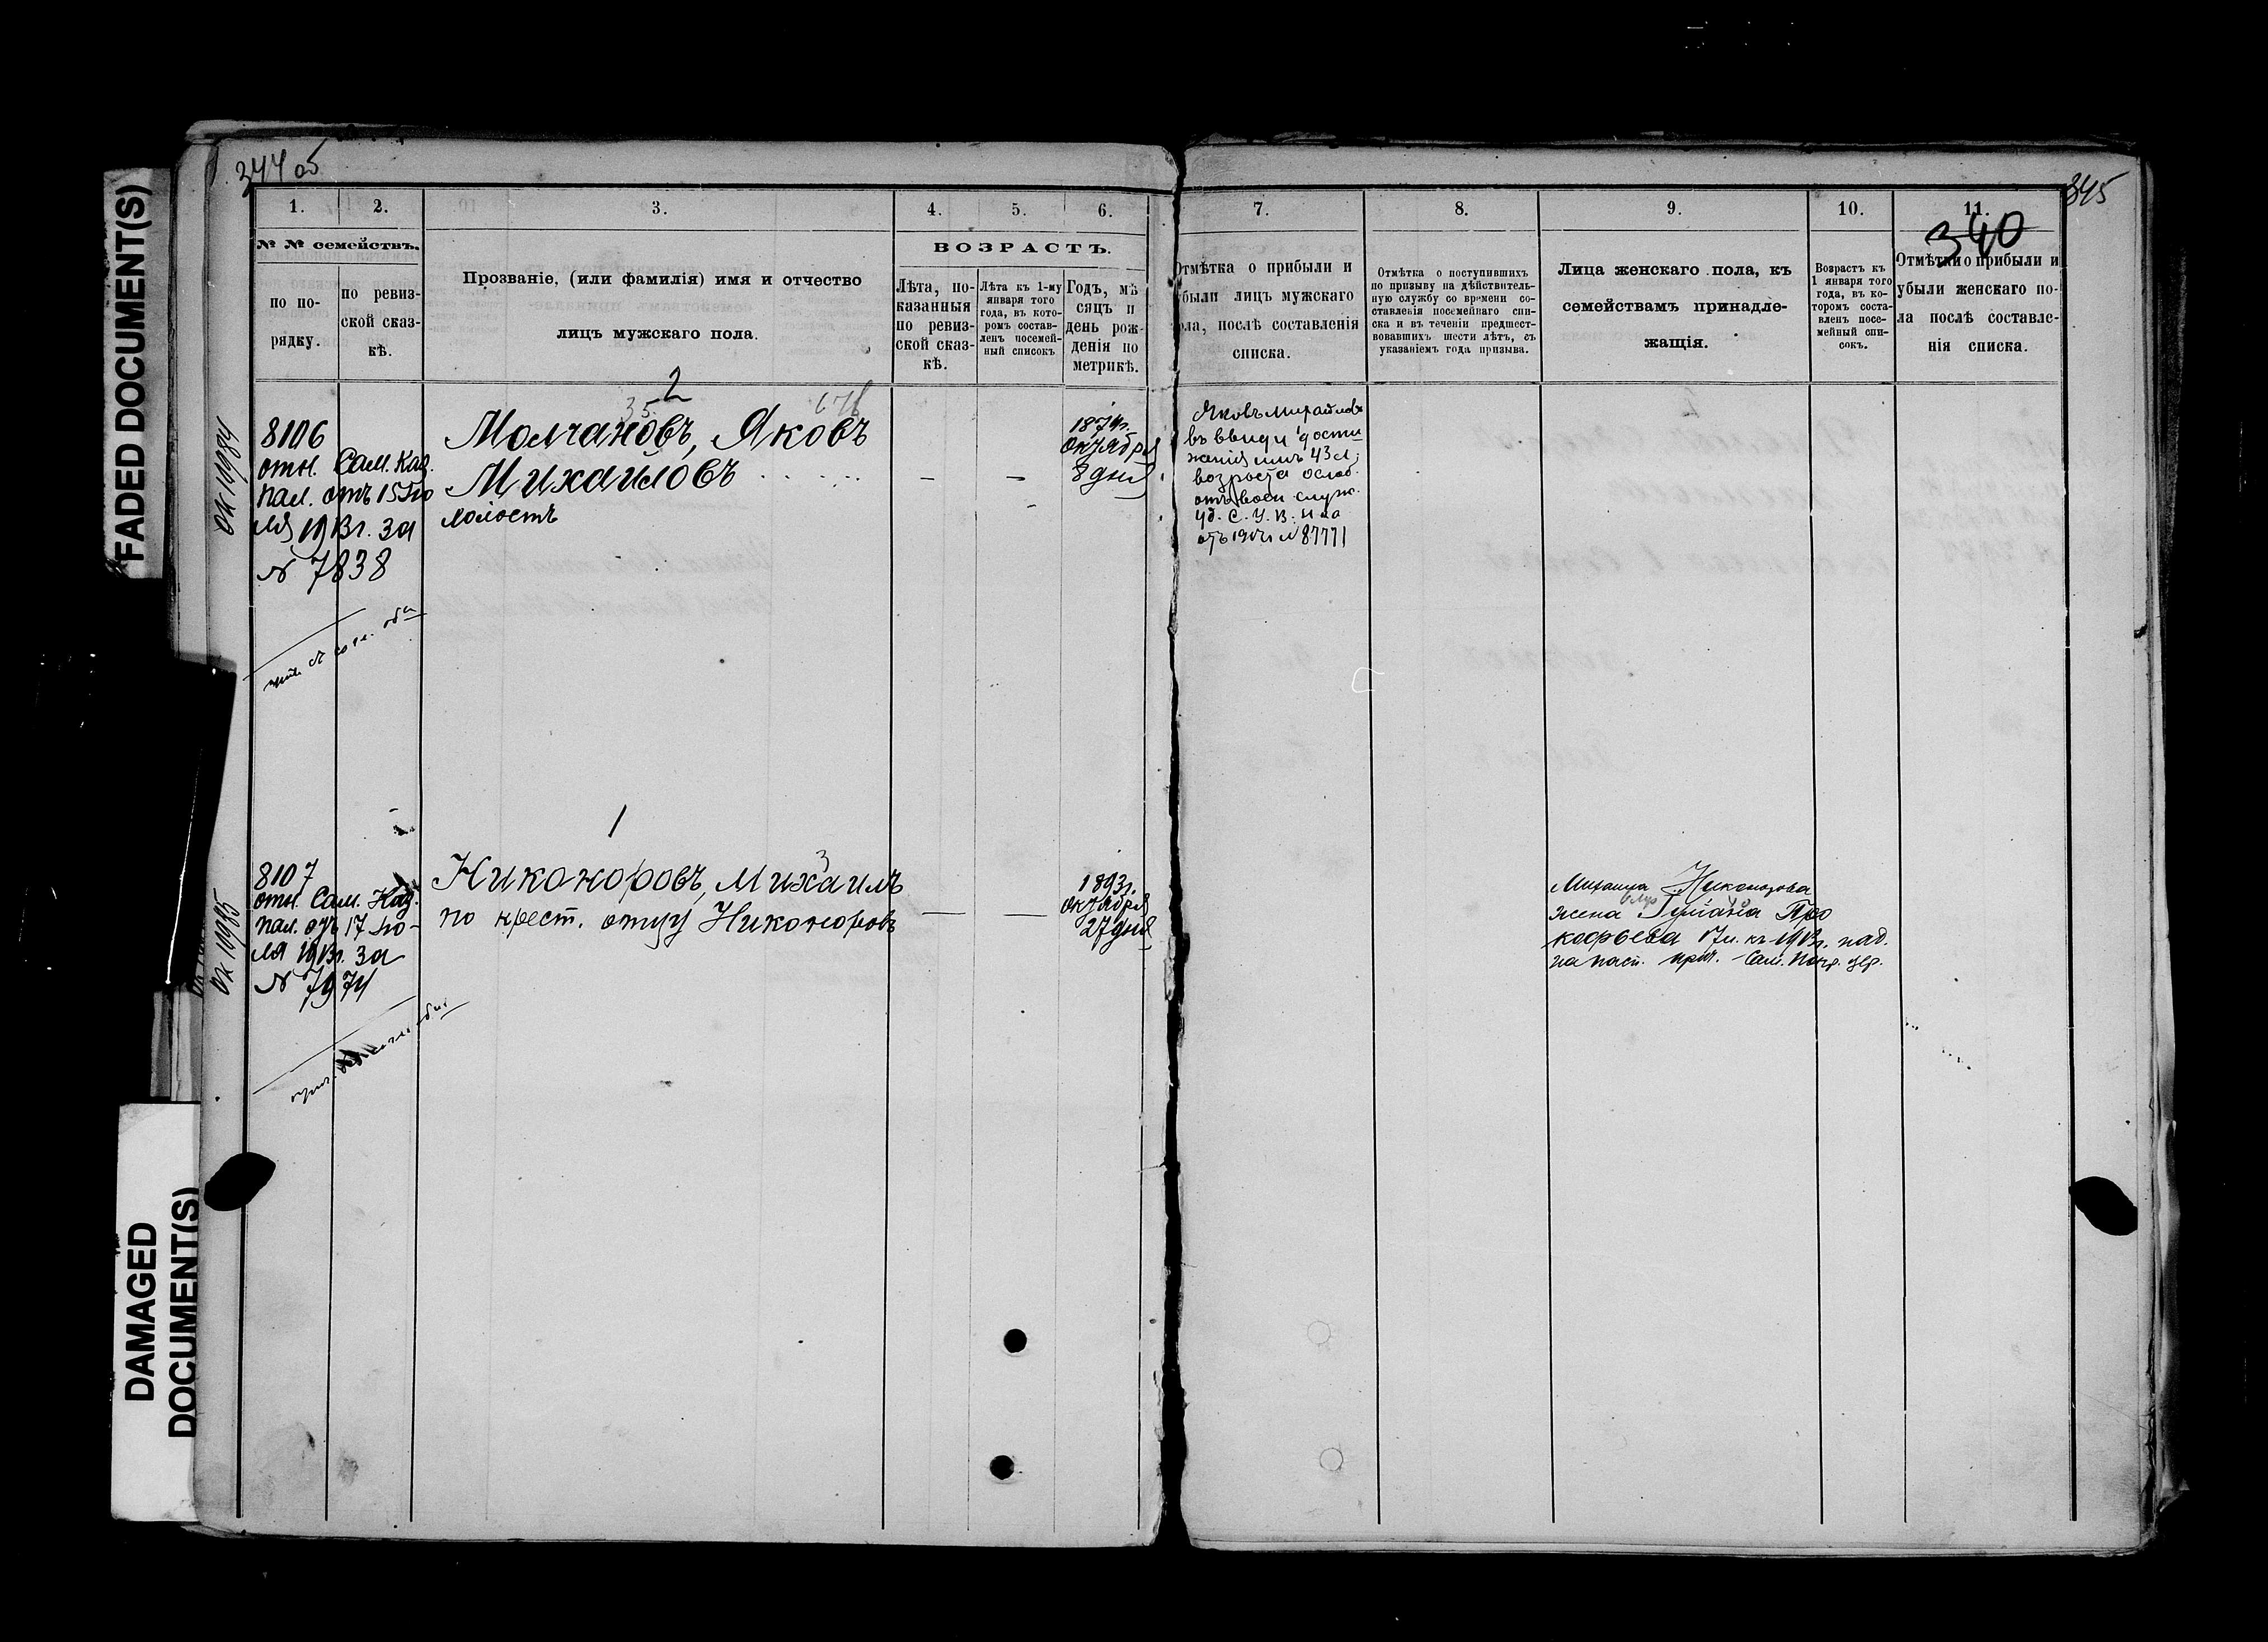 FADED DOCUMENT(S)
DAMAGED
DOCUMENT(S)
344 об
345
340
1.
2.
3.
4.
5.
6.
7.
8.
9.
10.
11.
№ № семействъ.
по по-
рядку.
по ревиз-
ской сказ-
кѣ.
Прозваніе, (или фамилія) имя и отчество
лицъ мужскаго пола.
ВОЗРАСТЪ.
Лѣта, по-
казанныя
по ревиз-
ской сказ-
кѣ.
Лѣта къ 1-му
января того
года, въ кото-
ромъ состав-
ленъ посемей-
ный списокъ
Годъ, мѣ
сяцъ и
день рож-
денія по
метрикѣ.
Отмѣтка о прибыли и
убыли лицъ мужскаго
пола, послѣ составленія
списка.
Отмѣтка о поступившихъ
по призыву на дѣйствитель-
ную службу со времени со-
ставленія посемейнаго спи-
ска и въ теченіи предшест-
вовавшихъ шести лѣтъ, съ
указаніемъ года призыва.
Лица женскаго пола, къ
семействамъ принадле-
жащія.
Возрастъ къ
1 января того
года, въ ко-
торомъ соста-
вленъ посе-
мейный спи-
сокъ.
Отмѣтки о прибыли и
убыли женскаго по-
ла послѣ составле-
нія списка.
8106
отн. Сам. Каз.
пал. отъ 15 Ію
ля 1913г. за
№ 7838
2
Молчановъ, Яковъ
Михаиловъ
холостъ
1874г.
Октября
8 дня
Яковъ Михайловъ
въ виду дости
женія имъ 43 л.
возраста освоб.
отъ воен. служ.
№ 87771
8107
отн. Сам. Каз.
пал. отъ 17 Ію-
ля 1913г. за
№ 7974
1
Никоноровъ, Михаилъ
по крест. отцу Никоноровъ
1893г.
Октября
27 дня
Михаила Никонорова
жена Про
кофьева 17 л. къ 1913г.